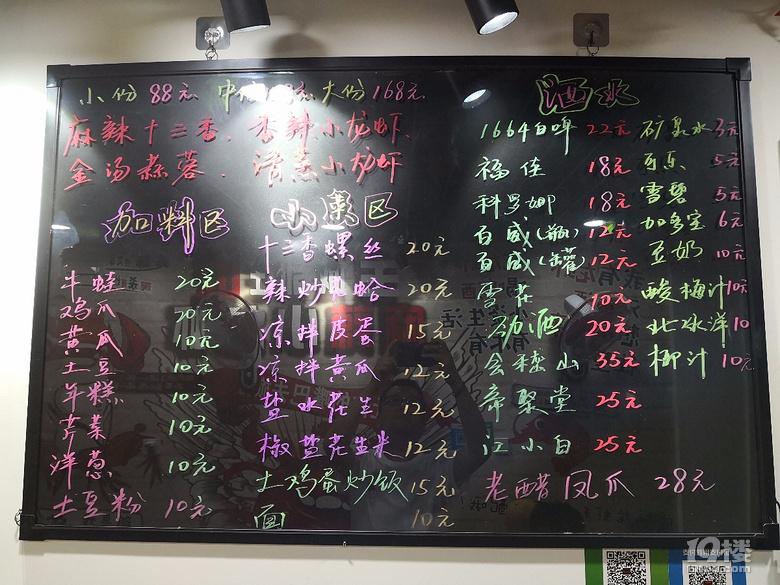 小份88元 中份 元 大份168元
麻辣十三香、香辣小龙虾
金汤蒜蓉、清蒸小龙虾
加料区
牛蛙 20元
鸡爪 20元
黄瓜 10元
土豆 10元
年糕 10元
芹菜 10元
洋葱 10元
土豆粉 10元
小菜区
十三香螺丝 20元
辣炒花蛤 20元
凉拌皮蛋 15元
凉拌黄瓜 12元
盐水花生 12元
椒盐花生米 12元
土鸡蛋炒饭 15元
面 10元
酒水
1664白啤 22元
福佳 18元
科罗娜 18元
百威(瓶) 12元
百威(罐) 12元
雪花 10元
劲酒 20元
会稽山 35元
帝聚堂 25元
江小白 25元
老醋凤爪 28元
矿泉水 3元
可乐 5元
雪碧 5元
加多宝 6元
豆奶 10元
酸梅汁 10元
北冰洋 10
椰汁 10元
19楼